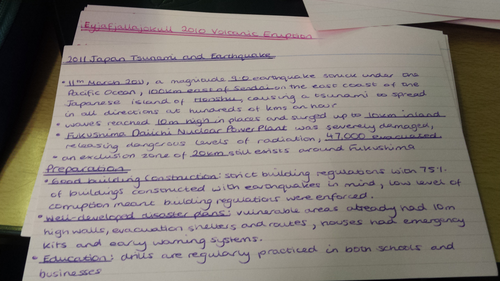 Eyjafjallajokull 2010 Volcanic Eruption
2011 Japan Tsunami and Earthquake
• 11th March 2011, a magnitude 9.0 earthquake struck under the
Pacific Ocean, 100km east of Sendai on the east coast of the
Japanese island of Honshu, causing a tsunami to spread
in all directions at hundreds of kms an hour
• waves reached 10m high in places and surged up to 10km inland
• Fukushima Daiichi Nuclear Power Plant was severely damaged,
releasing dangerous levels of radiation, 47,000 evacuated
• an exclusion zone of 20km still exists around Fukushima
Preparation
• Good building construction: strict building regulations with 75%
of buildings constructed with earthquakes in mind, low level of
corruption meant building regulations were enforced.
• Well-developed disaster plans: vulnerable areas already had 10m
high walls, evacuation shelters and routes, houses had emergency
kits and early warning systems.
• Education: drills are regularly practiced in both schools and
businesses